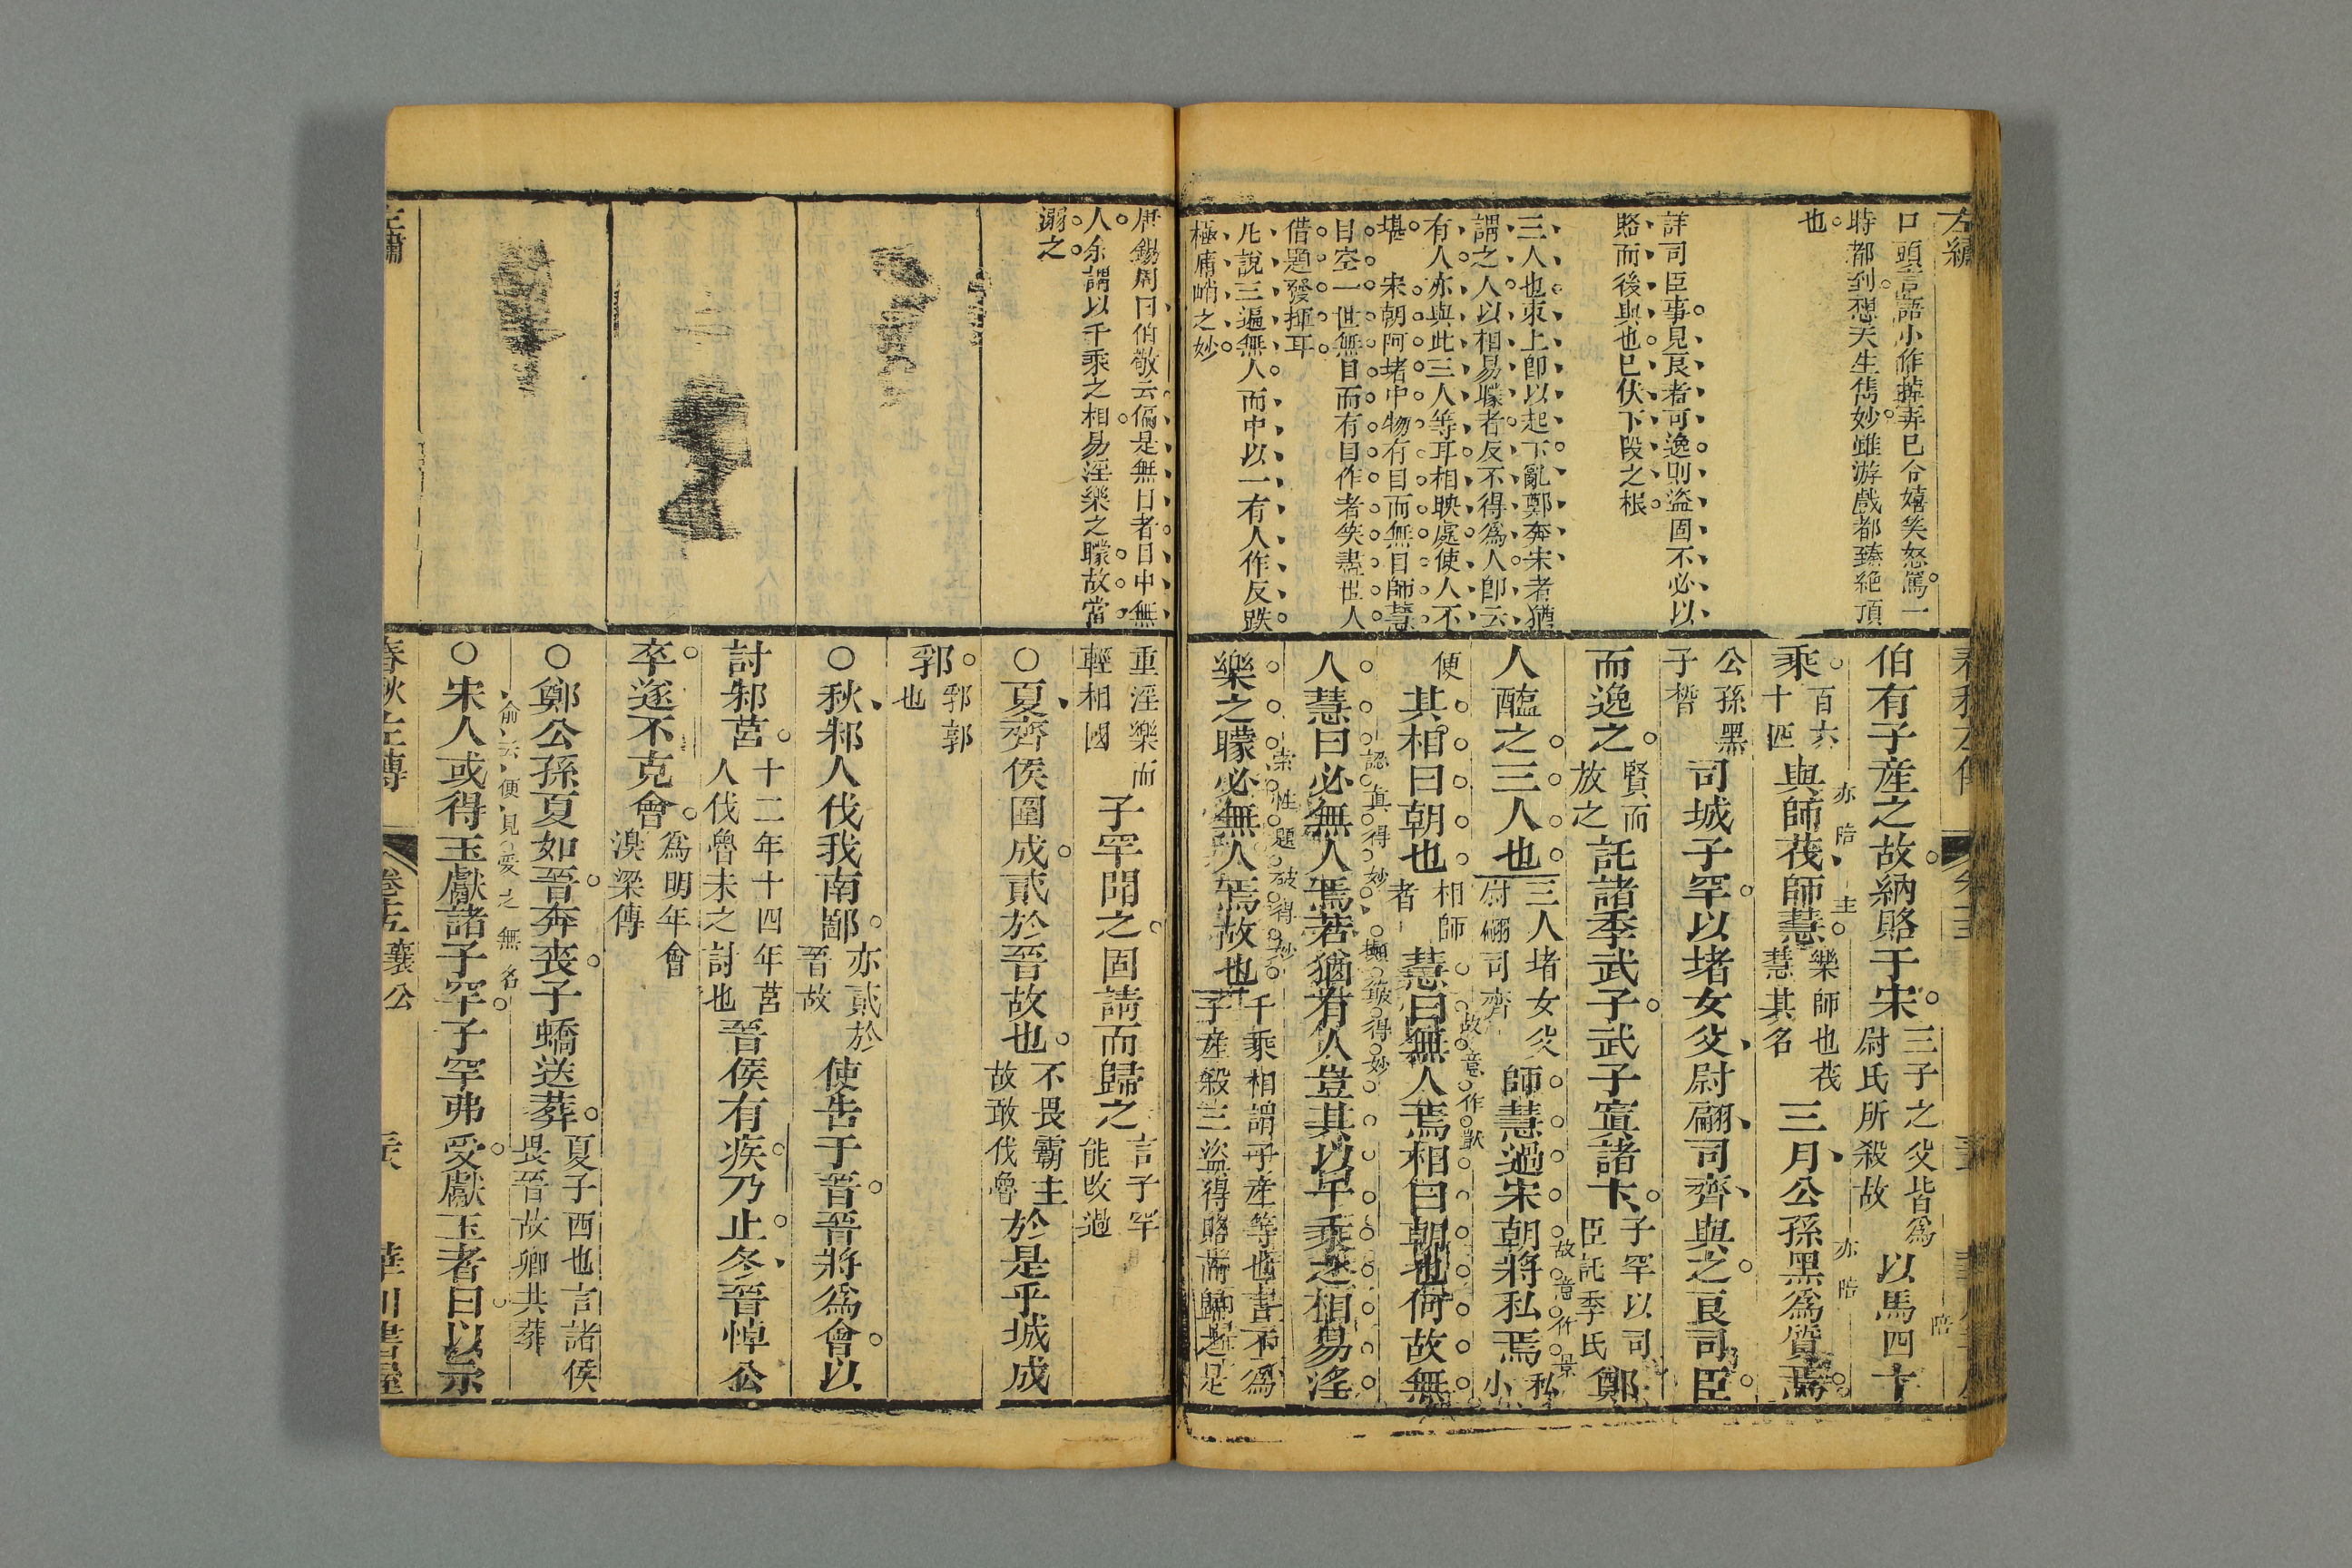 左繡
口頭言語小作掉弄已令嬉笑怒罵一
時都到想天生雋妙雖游戲都臻絕頂
也
詳司臣事見良者可逸則盜固不必以
賂而後與也已伏下段之根
三人也束上卽以起下亂鄭奔宋者猶
謂之人以相易矇者反不得為人卽云
有人亦與此三人等耳相映處使人不
堪　宋朝阿堵中物有目而無目師慧
目空一世無目而有目作者笑盡世人
借題發揮耳
凡說三遍無人而中以一有人作反跌
極庸峭之妙
春秋左傳
伯有子產之故納賂于宋三子之父皆為尉氏所殺故以馬四十
乘百六十四與師茷師慧樂師也茷慧其名三月公孫黑為質焉
亦陪　主　亦陪
陪
公孫黑子晳司城子罕以堵女父尉翩司齊與之良司臣
而逸之賢而放之託諸季武子武子寘諸卞子罕以司臣託季氏鄭
人醢之三人也三人堵女父尉翩司齊師慧過宋朝將私焉私小
故意作景
便其相曰朝也相師者慧曰無人焉相曰朝也何故無
故意作獃
人慧曰必無人焉若猶有人豈其以千乘之相易淫
認真得妙　擷皷得妙
樂之矇必無人焉故也千乘相謂子產等也言不為子產殺三盜得賂而歸之是
索性題破得妙
唐錫周曰伯敬云偏是無目者目中無
人余謂以千乘之相易淫樂之矇故當
溺之
重淫樂而輕相國子罕聞之固請而歸之言子罕能改過
○夏齊侯圍成貳於晉故也不畏霸主故敢伐魯於是乎城成
郛郛郭也
○秋邾人伐我南鄙亦貳於晉故使告于晉晉將為會以
討邾莒十二年十四年莒人伐魯未之討也晉侯有疾乃止冬晉悼公
卒遂不克會為明年會湨梁傳
○鄭公孫夏如晉奔喪子蟜送葬夏子西也言諸侯畏晉故卿共葬
俞云便見愛之無名
○宋人或得玉獻諸子罕子罕弗受獻玉者曰以示
左繡
春秋左傳　卷十五襄公　華川書屋